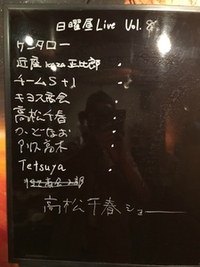 日曜屋Live Vol.8
ケンタロー
近藤 kaza 正比郎
チームS+1
キヨス商会
高松千春
つかどなお
高木
Tetsuya
高松千春ショー